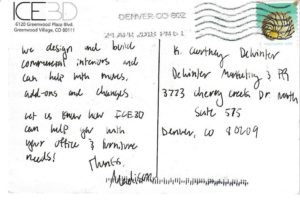 ICE3D
6120 Greenwood Plaza Blvd.
Greenwood Village, CO 80111
DENVER CO 802
29 APR 2008 PM
We design and build
commercial interiors and
can help with moves,
add-ons and changes.
Let us know how ICE3D
can help you with
your office & furniture
needs!
Thanks,
K. Courtney DeWinter
DeWinter Marketing & PR
3773 Cherry Creek Dr North
Suite 575
Denver, CO 80209